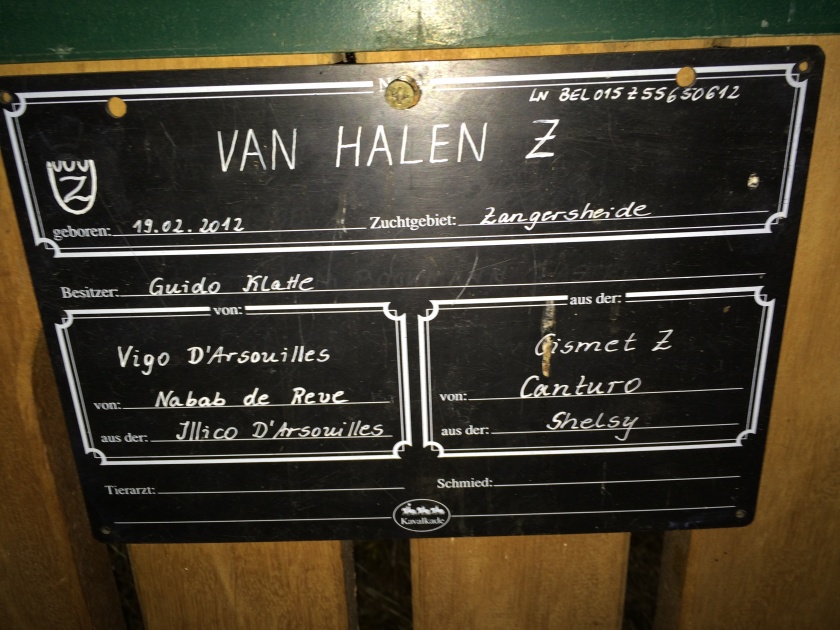 LN BEL015Z55650612
VAN HALEN Z
Z
geboren: 19.02.2012 Zuchtgebiet: Zangersheide
Besitzer: Guido Klatte
von:
Vigo D'Arsouilles
von: Nabab de Reve
aus der: Illico D'Arsouilles
aus der:
Gismet Z
von: Canturo
aus der: Shelsy
Tierarzt: Schmied:
Kavalkade